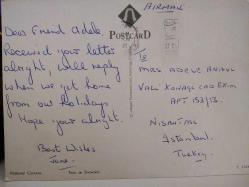 AIRMAIL
POSTCARD
Dear Friend Adele.
Received your letter
alright, will reply
when we get home
from our holidays
Hope your alright.
Best Wishes
MRS ADELE
VALI KONAGI CAD EKIM
APT 153/13
NISANTAS
Istanbul
Turkey